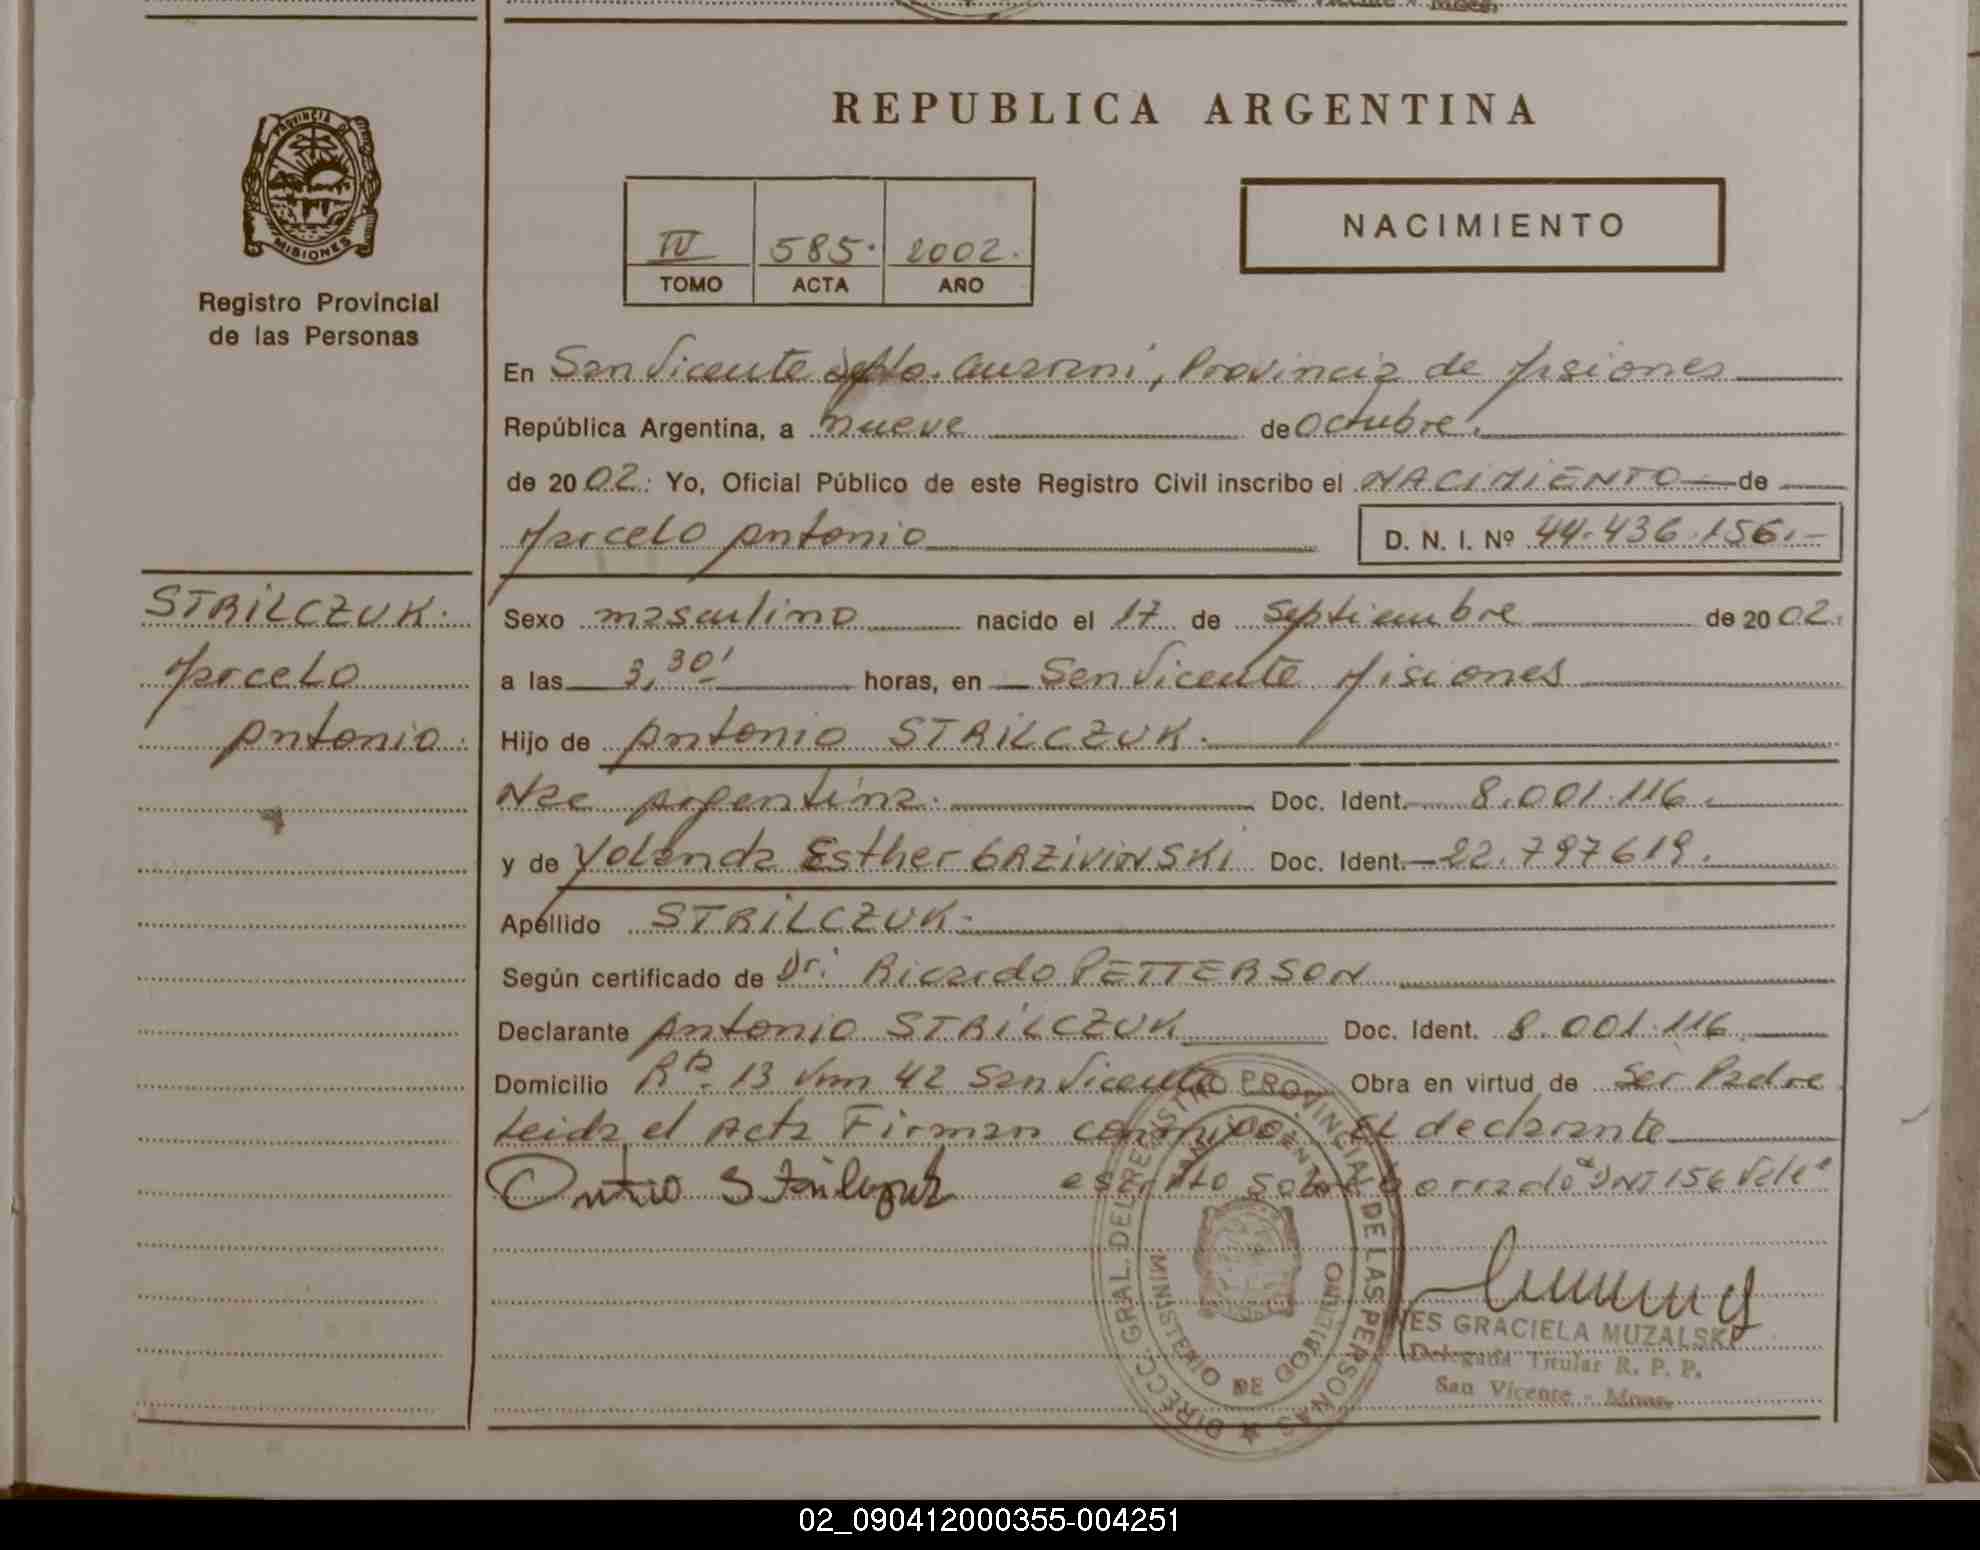 REPUBLICA ARGENTINA
PROVINCIA DE
MISIONES
Registro Provincial
de las Personas
IV 585. 2002.
TOMO ACTA AÑO
NACIMIENTO
En San Vicente Depto. Guarani, Provincia de Misiones
República Argentina, a nueve de Octubre.
de 2002. Yo, Oficial Público de este Registro Civil inscribo el NACIMIENTO de
Marcelo Antonio D. N. I. Nº 44.436.156.-
STRILCZUK.
Marcelo
Antonio.
Sexo masculino nacido el 17 de Septiembre de 2002.
a las 3,30' horas, en San Vicente Misiones
Hijo de Antonio STRILCZUK.
Nac Argentina. Doc. Ident. 8.001.116.
y de Yolanda Esther GAZIVINSKI Doc. Ident. 22.797619.
Apellido STRILCZUK.
Según certificado de Dr. Ricardo PETTERSON
Declarante Antonio STRILCZUK Doc. Ident. 8.001.116
Domicilio Rta. 13 km 42 San Vicente Obra en virtud de Ser Padre
Leida el Acta Firman conmigo El declarante
escrito sobre borrado "DNI 156 Vale"
DIRECC. GRAL. DEL REGISTRO PROVINCIAL DE LAS PERSONAS
SAN VICENTE
MINISTERIO DE GOBIERNO
INES GRACIELA MUZALSKI
Delegada Titular R. P. P.
San Vicente - Mnes.
02_090412000355-004251